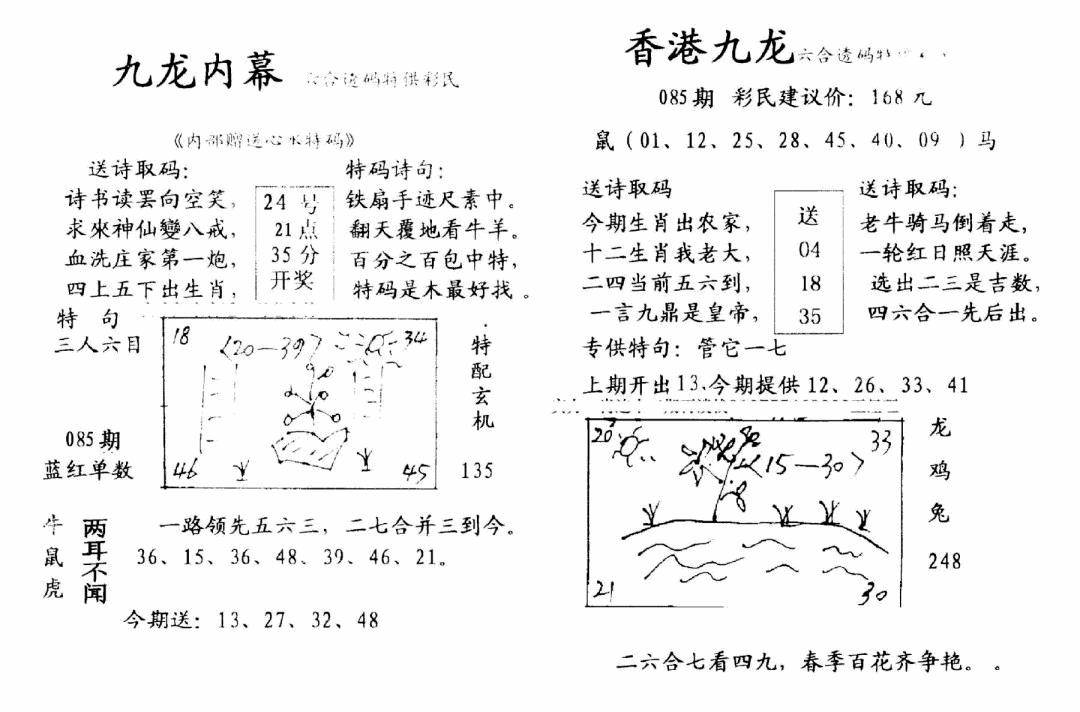 九龙内幕
六合透码特供彩民
《内部赠送心水特码》
送诗取码：
诗书读罢向空笑，
求來神仙變八戒，
血洗庄家第一炮，
四上五下出生肖，
24号
21点
35分
开奖
特码诗句：
铁扇手迹尺素中。
翻天覆地看牛羊。
百分之百包中特，
特码是木最好找。
特 句
三人六目
085期
蓝红单数
18
〈20—39〉
34
46
45
特配玄机
135
牛鼠虎
两耳不闻
一路领先五六三，二七合并三到今。
36、15、36、48、39、46、21。
今期送：13、27、32、48
香港九龙
六合透码特
085期 彩民建议价：168元
鼠（01、12、25、28、45、40、09 ）马
送诗取码
今期生肖出农家，
十二生肖我老大，
二四当前五六到，
一言九鼎是皇帝，
送
04
18
35
送诗取码：
老牛骑马倒着走，
一轮红日照天涯。
选出二三是吉数，
四六合一先后出。
专供特句：管它一七
上期开出13、今期提供12、26、33、41
20
33
〈15—30〉
21
30
龙
鸡
兔
248
二六合七看四九，春季百花齐争艳。。